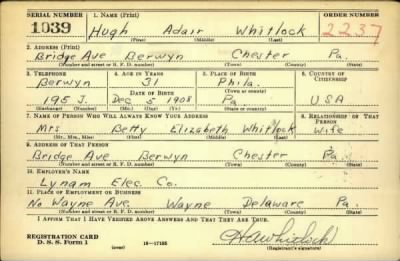 SERIAL NUMBER 1. NAME (Print) ORDER NUMBER
1039 Hugh Adair Whitlock 2237
(First) (Middle) (Last)
2. ADDRESS (Print)
Bridge Ave Berwyn Chester Pa.
(Number and street or R. F. D. number) (Town) (County) (State)
3. TELEPHONE 4. AGE IN YEARS 5. PLACE OF BIRTH 6. COUNTRY OF CITIZENSHIP
Berwyn 31 Phila.
DATE OF BIRTH (Town or county)
195 J Dec 5 1908 Pa USA
(Exchange) (Number) (Mo.) (Day) (Yr.) (State or country)
7. NAME OF PERSON WHO WILL ALWAYS KNOW YOUR ADDRESS 8. RELATIONSHIP OF THAT PERSON
Mrs Betty Elizabeth Whitlock Wife
(Mr., Mrs., Miss) (First) (Middle) (Last)
9. ADDRESS OF THAT PERSON
Bridge Ave Berwyn Chester Pa
(Number and street or R. F. D. number) (Town) (County) (State)
10. EMPLOYER'S NAME
Lynam Elec. Co.
11. PLACE OF EMPLOYMENT OR BUSINESS
No Wayne Ave. Wayne Delaware Pa
(Number and street or R. F. D. number) (Town) (County) (State)
I AFFIRM THAT I HAVE VERIFIED ABOVE ANSWERS AND THAT THEY ARE TRUE.
REGISTRATION CARD
D. S. S. Form 1 (over) 16—17105 HAWhitlock
(Registrant's signature)